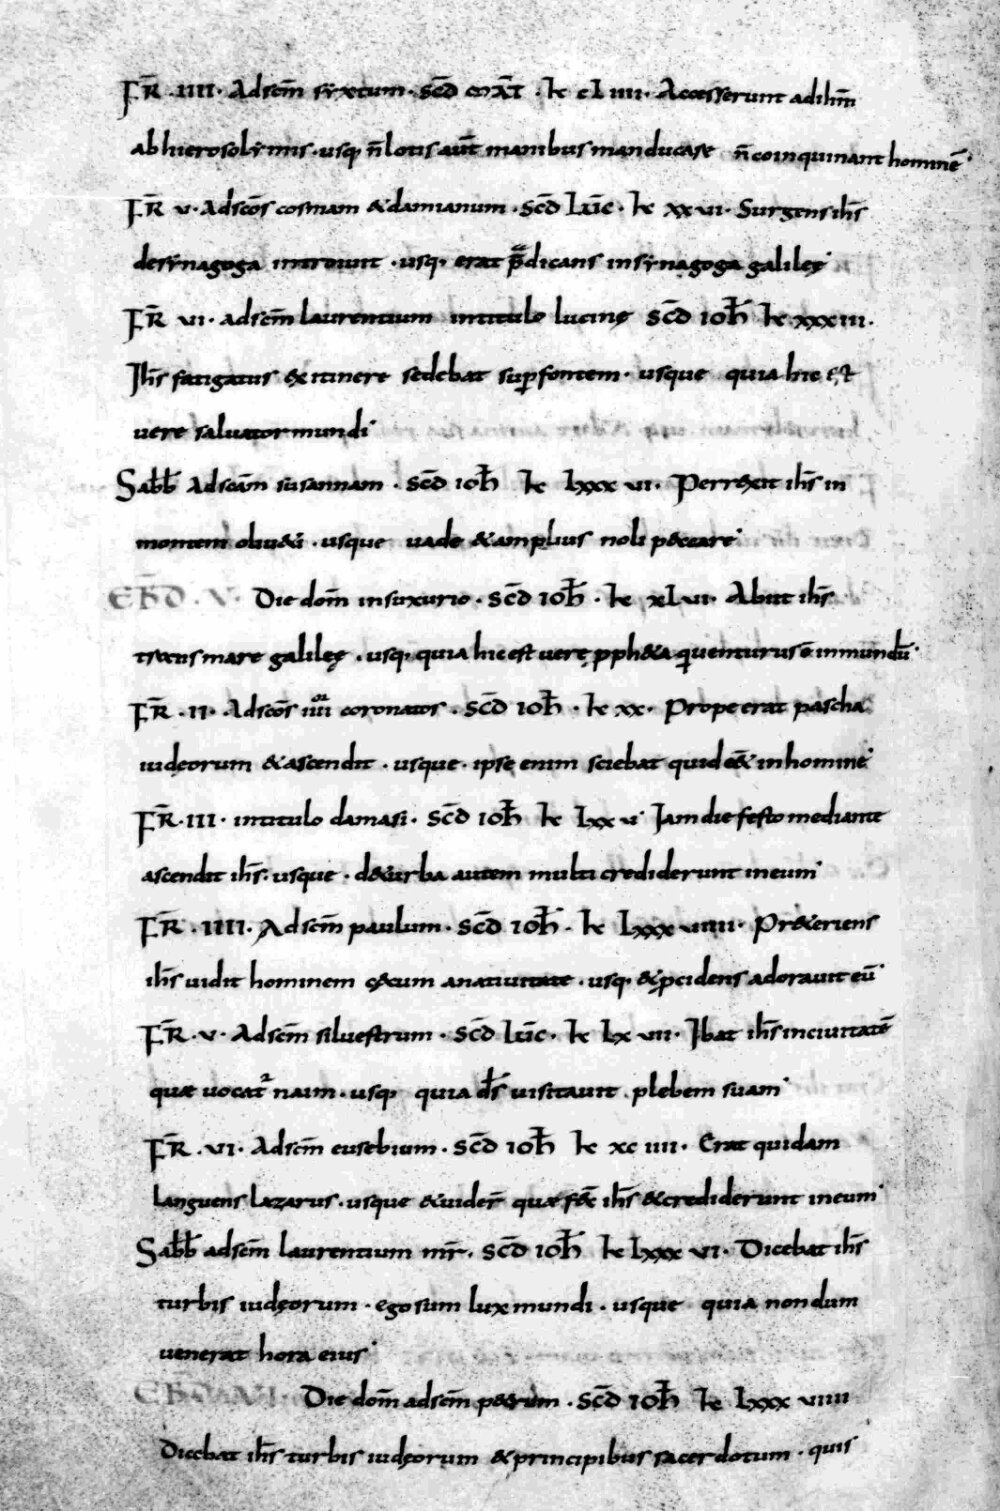 FR̄ · IIII · Ad sc̄m syxtum · sc̄d mat̄ · k̄ cLIIII · Accesserunt ad ihm̄
ab hierosolymis · usq; n̄ lotis aut̄ manibus manducare n̄ coinquinant hominē
FR̄ V · Ad sc̄os cosmam & damianum · sc̄d Luc̄ · k̄ xxvi · Surgens ih̄s
de synagoga introiuit · usq; erat p̄dicans in synagoga galileę
FR̄ VI · ad sc̄m laurentium in titulo lucinę sc̄d ioh̄ k̄ xxxiii ·
Ih̄s fatigatus ex itinere sedebat sup fontem · usque quia hic est
vere saluator mundi
Sabb̄ Ad sc̄am susannam · sc̄d ioh̄ k̄ Lxxxvi · Perrexit ih̄s in
montem oliu&i · usque uade & amplius noli peccare
EBD̄ · V · Die dom̄ in suxurio · sc̄d ioh̄ · k̄ xLvi · Abiit ih̄s
trans mare galileę · usq; quia hic est uere pph&a qui uenturus ē in mundū
FR̄ · II · Ad sc̄os iiii or coronatos · sc̄d ioh̄ · k̄ xx · Prope erat pascha
iudeorum & ascendit · usque · ipse enim sciebat quid e&̄ in homine
FR̄ · III · in titulo damasi · sc̄d ioh̄ k̄ Lxxv Iam die festo mediante
ascendit ih̄s · usque · de turba autem multi crediderunt in eum
FR̄ · IIII · Ad sc̄m paulum · sc̄d ioh̄ · k̄ Lxxxviiii · Pr&eriens
ih̄s uidit hominem cęcum a natiuitate · usq; & p̄cidens adorauit eū
FR̄ · V · Ad sc̄m siluestrum · sc̄d Luc̄ · k̄ Lxvii · Ibat ih̄s in ciuitatē
quæ uocat̄ naim · usq; quia d̄s uisitauit plebem suam
FR̄ · VI · Ad sc̄m eusebium · sc̄d ioh̄ k̄ xciiii · Erat quidam
languens lazarus · usque & uider̄ quæ fec̄ ih̄s & crediderunt in eum
Sabb̄ ad sc̄m laurentium mr̄ · sc̄d ioh̄ k̄ Lxxxvi · Dicebat ih̄s
turbis iudęorum · ego sum lux mundi · usque quia nondum
uenerat hora eius
EBD̄ · VI · Die dom̄ ad sc̄m p&rum · sc̄d ioh̄ k̄ Lxxxviiii
Dicebat ih̄s turbis iudęorum & principibus sacerdotum · quis